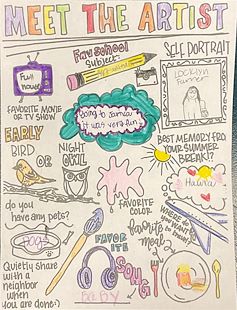 MEET THE ARTIST
Fav school
Subject:
SELF PORTRAIT
Full
house
FAVORITE MOVIE
OR TV SHOW
Going to
it was very fun
EARLY
BIRD OR
NIGHT
OWL
BEST MEMORY FRO
YOUR SUMMER
BREAK!?
do you
have any pets?
FAVORITE
COLOR
WHERE DO
YOU WANT
TO TRAVEL?
favorite
meal
FAVORITE
SONG
Quietly share
with a
neighbor
when
you are done:)
Baby